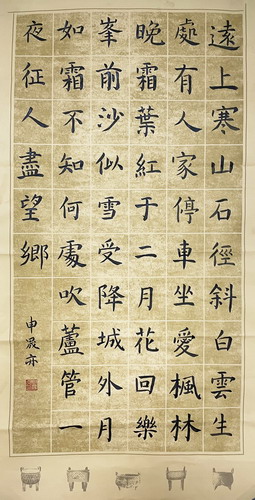 遠上寒山石徑斜白雲生
處有人家停車坐愛楓林
晚霜葉紅于二月花回樂
峯前沙似雪受降城外月
如霜不知何處吹蘆管一
夜征人盡望鄉
申 亦